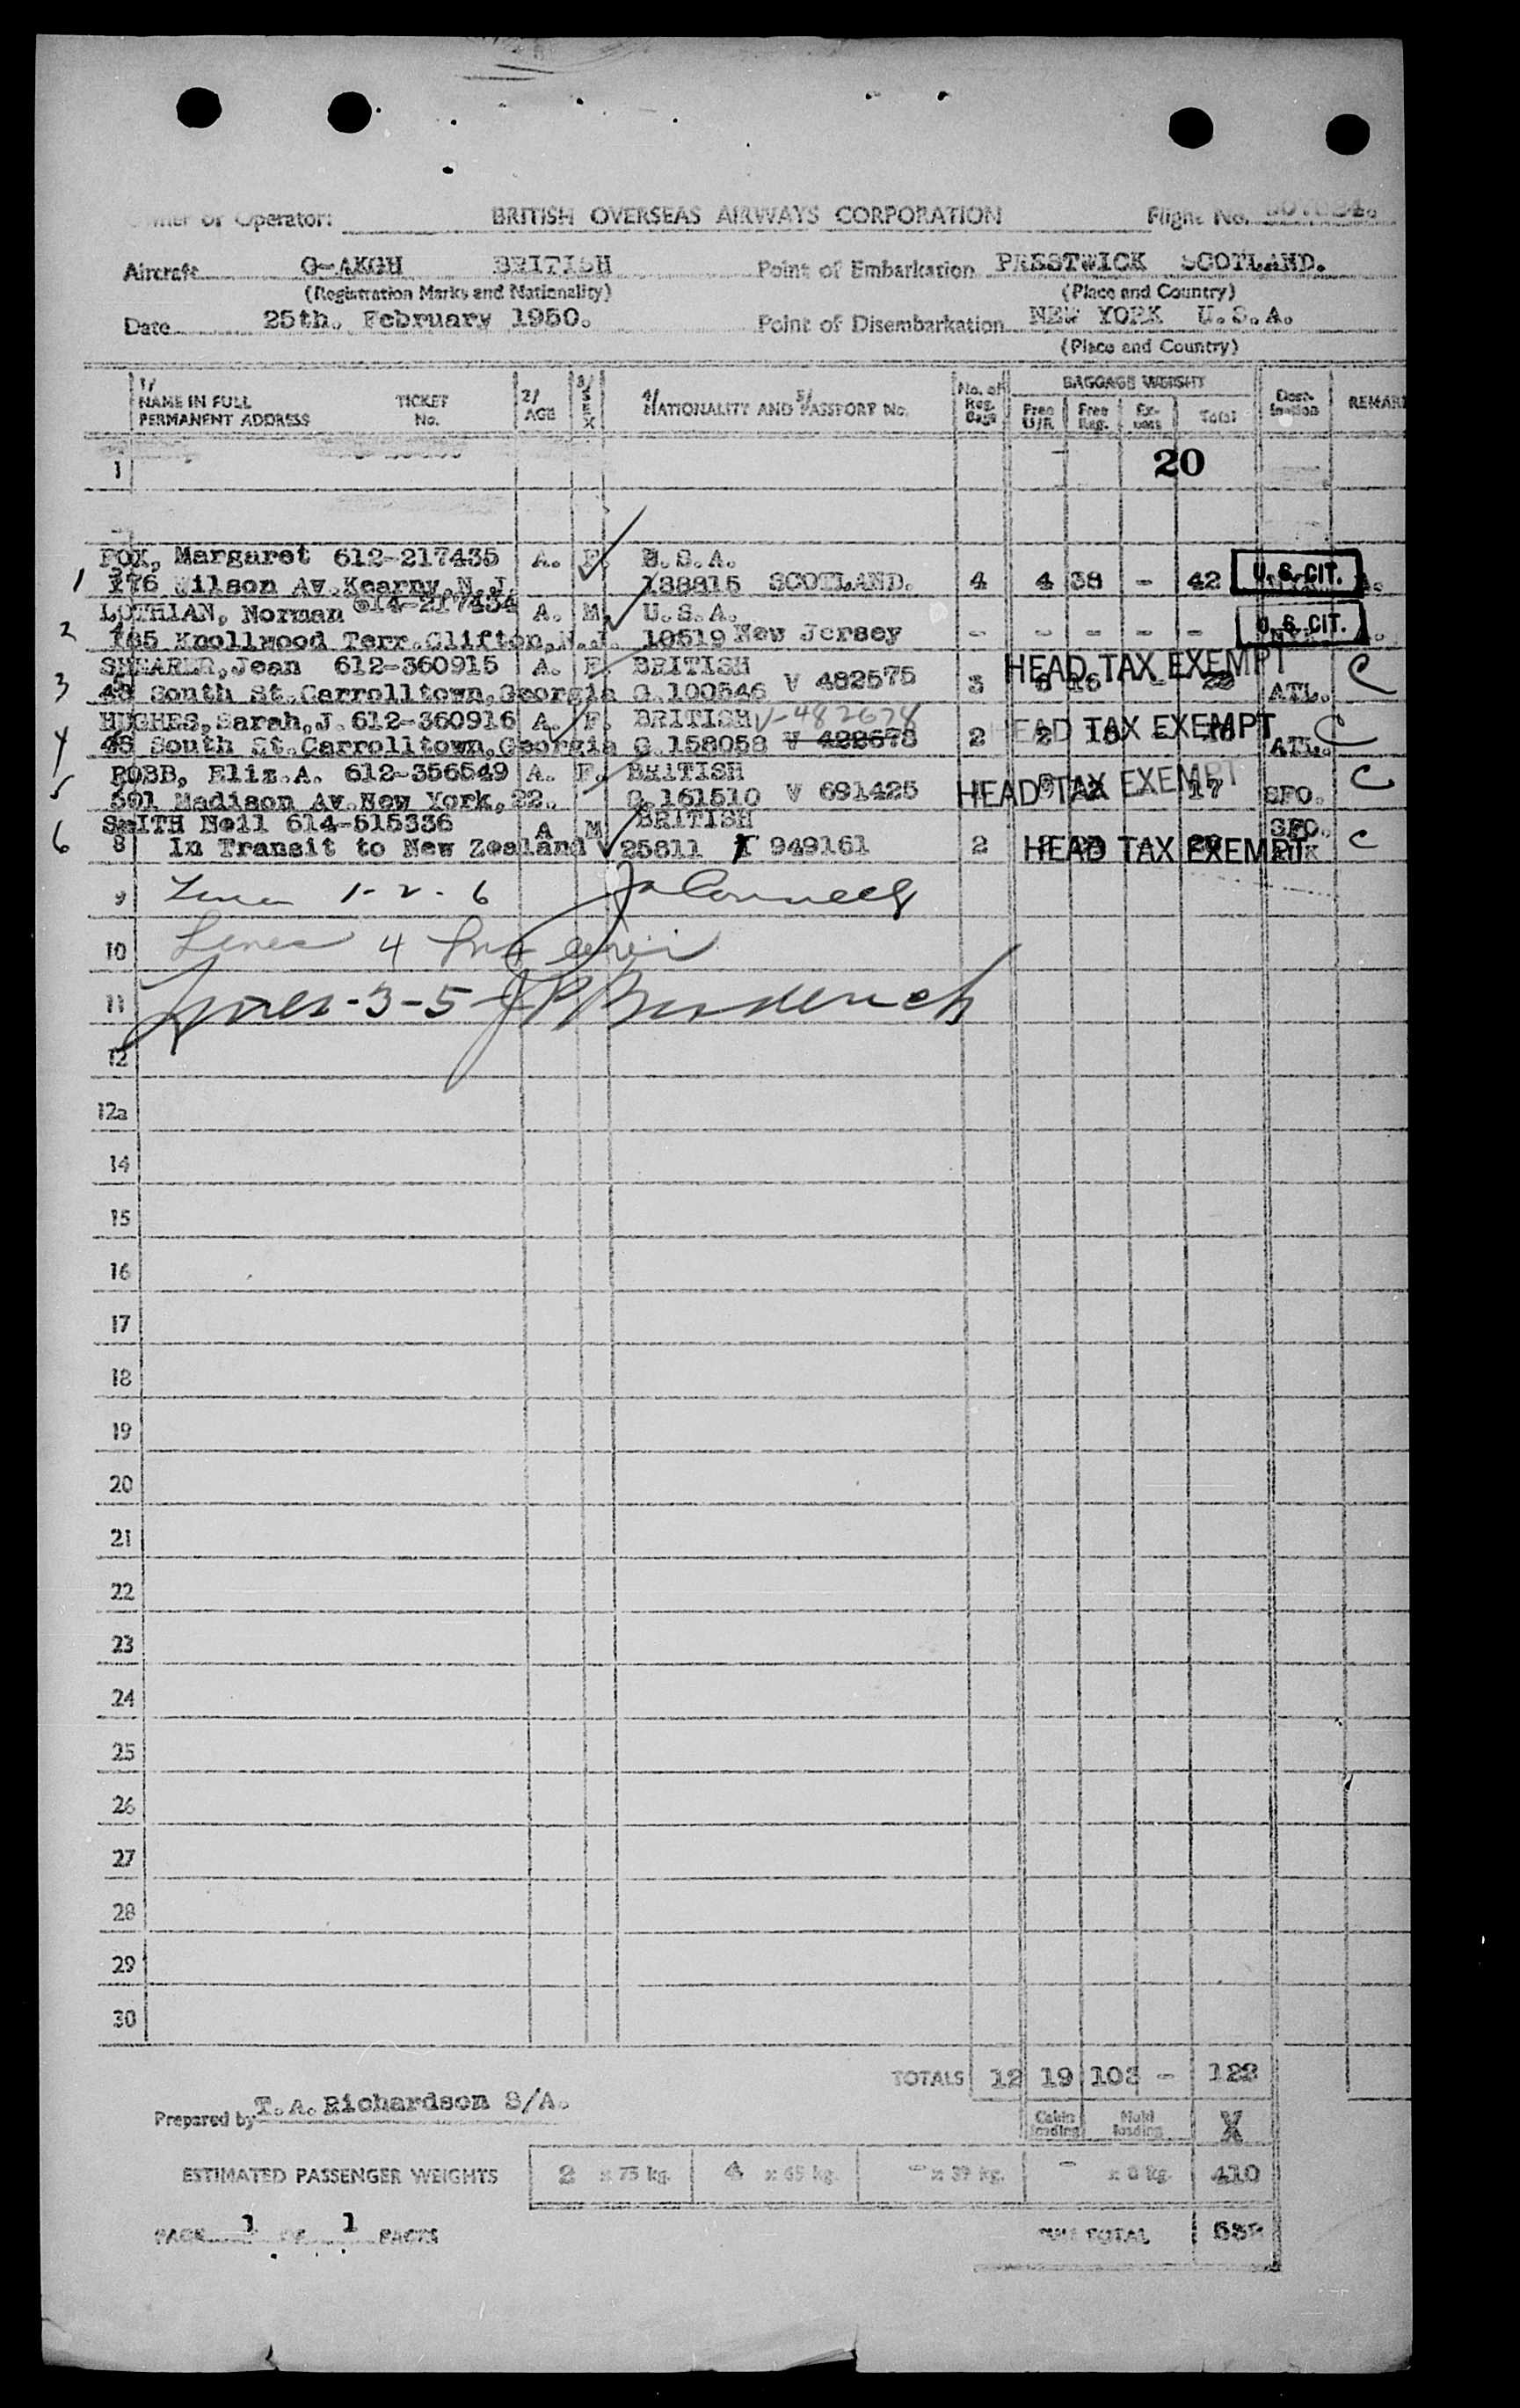 Owner or Operator: BRITISH OVERSEAS AIRWAYS CORPORATION Flight No.
Aircraft G-AKGH BRITISH Point of Embarkation PRESTWICK SCOTLAND.
(Registration Marks and Nationality) (Place and Country)
Date 25th. February 1950. Point of Disembarkation NEW YORK U.S.A.
(Place and Country)
1/ NAME IN FULL PERMANENT ADDRESS TICKET No. 2/ AGE 3/ SEX 4/ NATIONALITY AND 5/ PASSPORT No. No. of Reg. Bags BAGGAGE WEIGHT Free U/R Free Reg. Ex-cess Total Dest-ination REMAR
1 20
FOX, Margaret 612-217435 A. F. U.S.A.
1 176 Wilson Av.Kearny,N.J. 138815 SCOTLAND. 4 4 38 - 42 U.S. CIT.
LOTHIAN, Norman 614-217434 A. M. U.S.A.
2 165 Knollwood Terr.Clifton,N.J. 10519 New Jersey - - - - - U.S. CIT.
SHEARER,Jean 612-360915 A. F. BRITISH HEAD TAX EXEMPT C
3 43 South St.Carrolltown,Georgia C.100546 V 482575 3 6 16 - 22 ATL.
HUGHES,Sarah,J. 612-360916 A. F. BRITISH V-482678 HEAD TAX EXEMPT C
4 43 South St.Carrolltown,Georgia C.158058 V 422678 2 2 ATL.
ROBB, Eliz.A. 612-356549 A. F. BRITISH HEAD TAX EXEMPT C
5 501 Madison Av.New York,22. C.161510 V 691425 17 SFO.
SMITH Neil 614-515336 A M BRITISH SFO.
6 8 In Transit to New Zealand 25811 T 949161 2 HEAD TAX EXEMPT C
9 Lines 1-2-6
10 Lines 4
11 Lines-3-5-
12
12a
14
15
16
17
18
19
20
21
22
23
24
25
26
27
28
29
30
TOTALS 12 19 103 - 122
Prepared by T.A.Richardson S/A.
Cabin loading Hold loading X
ESTIMATED PASSENGER WEIGHTS 2 x 75 kg. 4 x 65 kg. - x 39 kg. - x 8 kg. 410
PAGE 1 OF 1 PAGES TOTAL